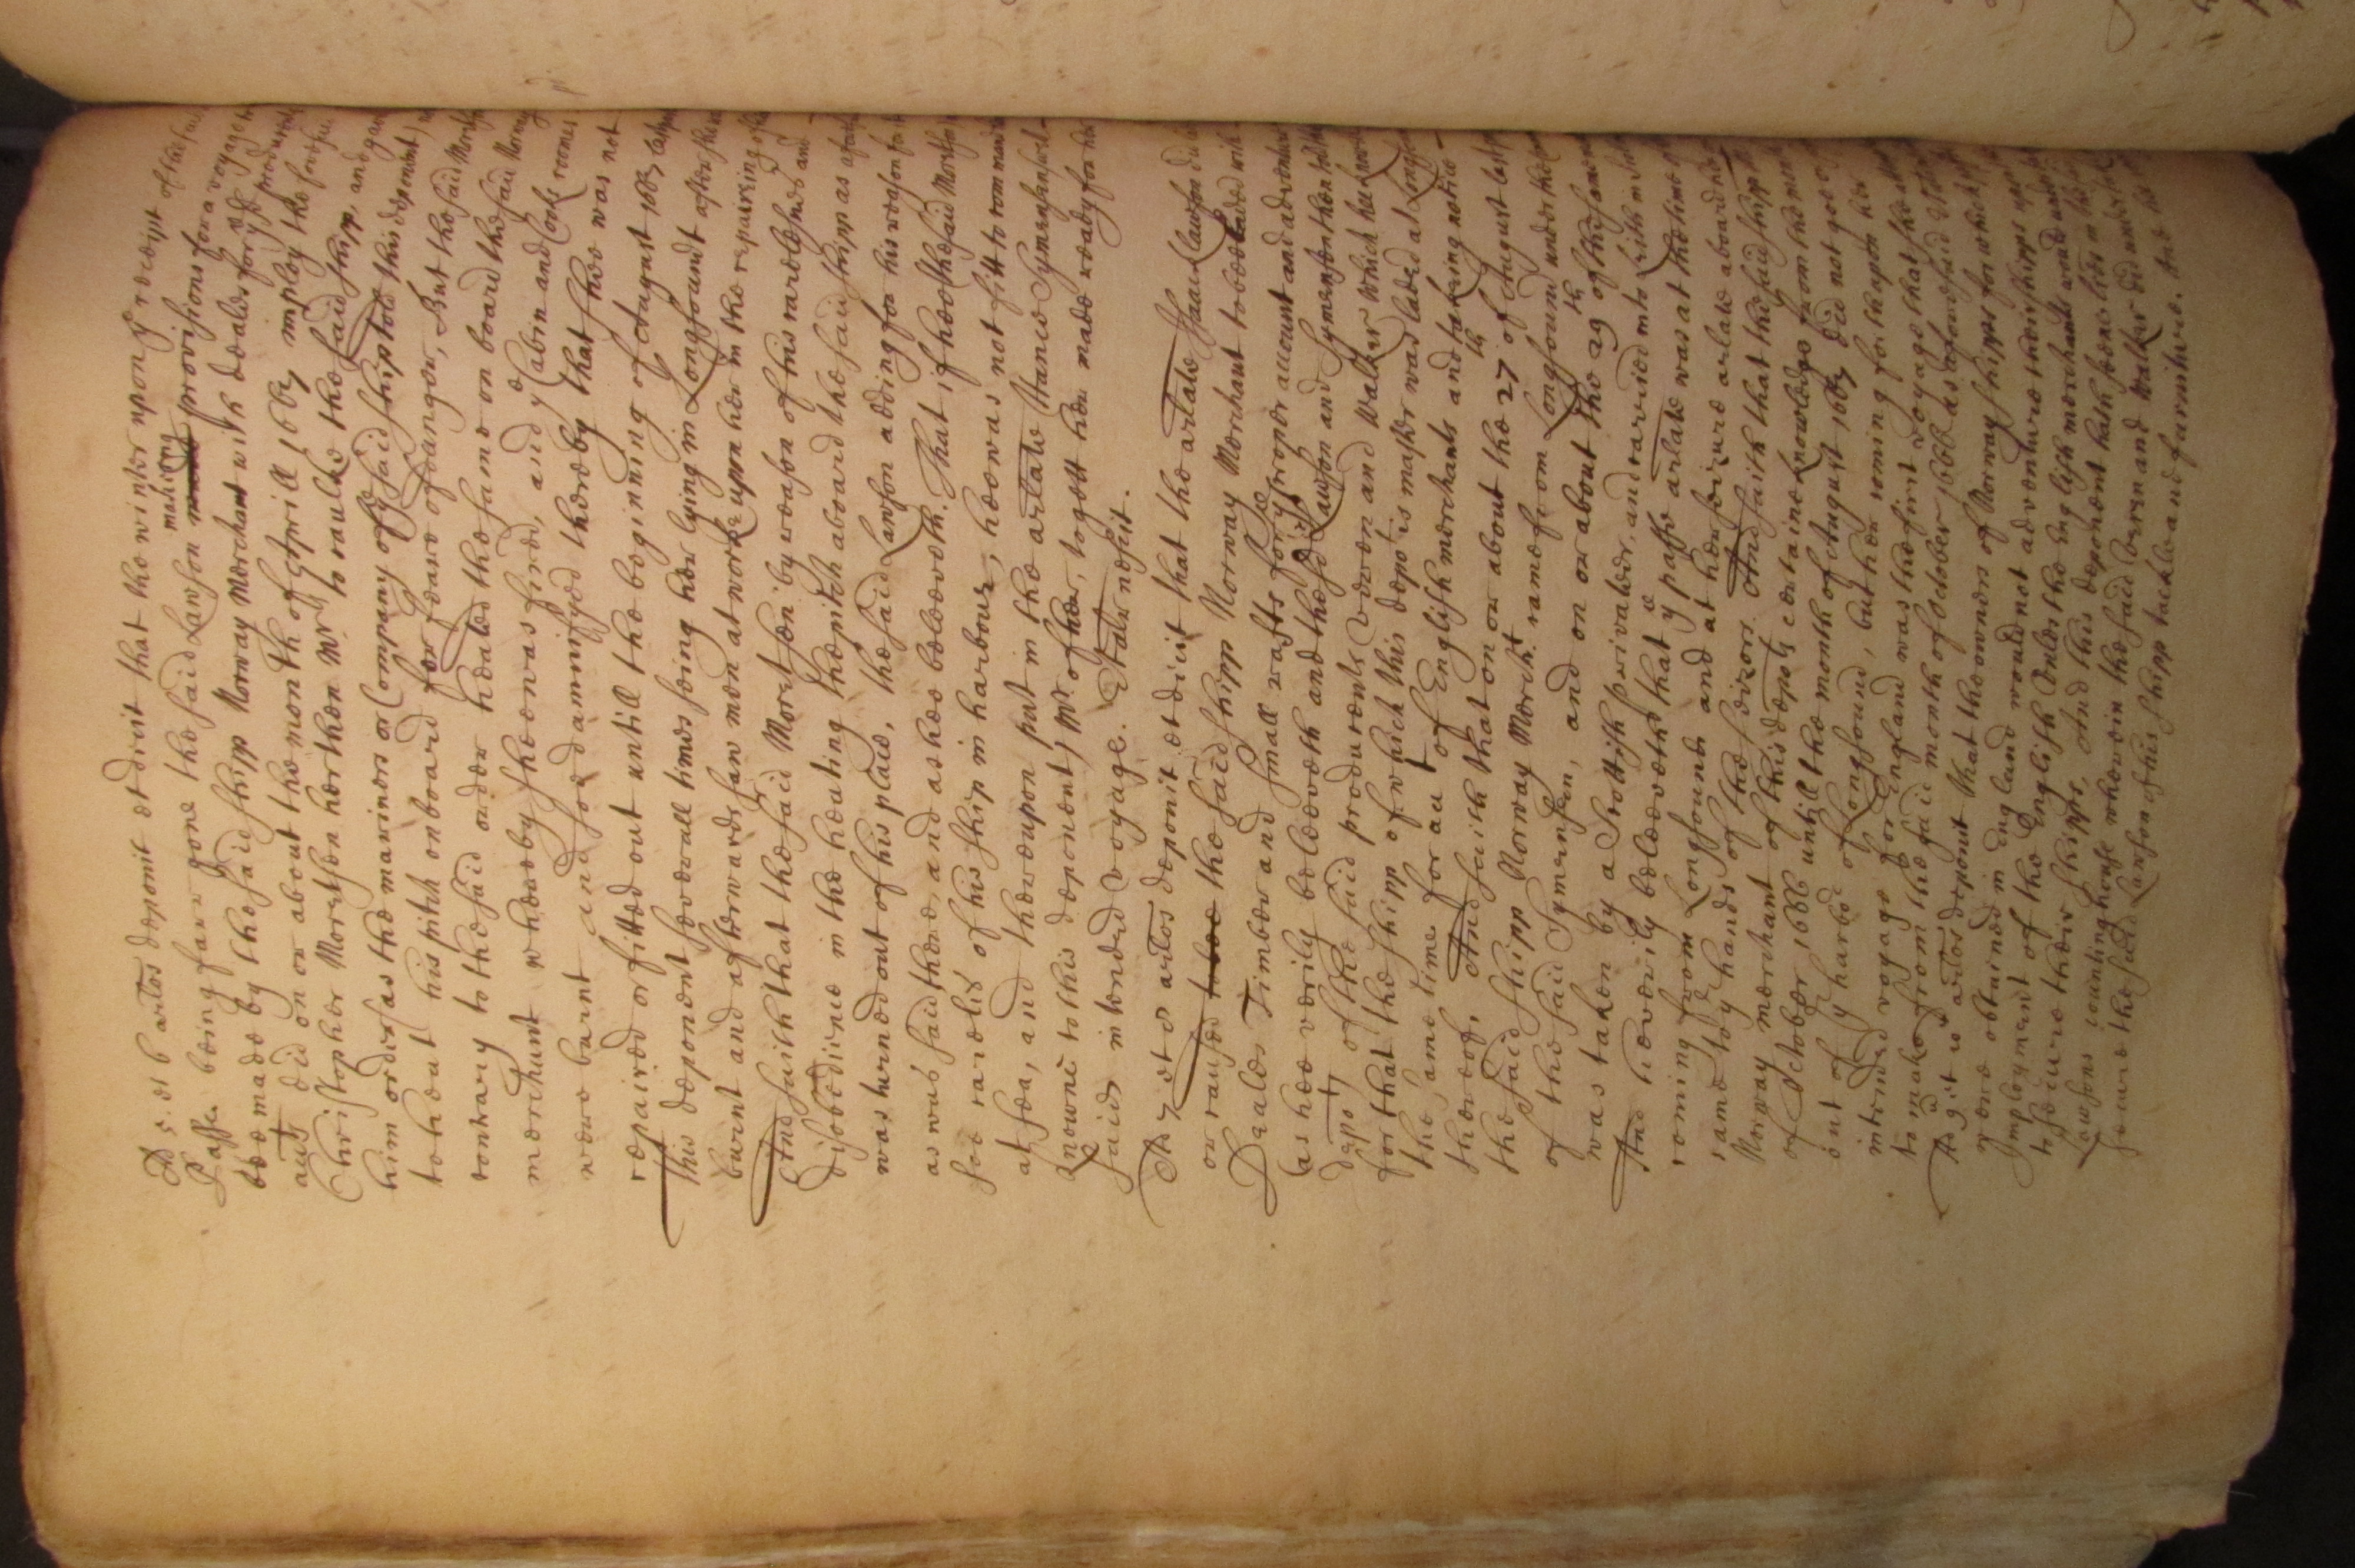 Ad 5. et 6 artos deponit et dicit that the winter upon ye receipt of the said
Passe being farr gone the said Lawson made making provisions for a voyage to
bee made by the said shipp Norway Merchant with dealds for ye sd producents
acct did on or about the month of Aprill 1667 imploy the foresaid
Christopher Moretsen her then Mr to caulke the said shipp, and gave
him order (as the mariners or Company of ye said ship told this deponent)
to heat his pitch on board for feare of danger, But the said Moretsen
contrary to the said order heated the same on board the said Norway
merchant whereby shee was fired, and ye Cabin and Cooke roomes
were burnt and soe damnifyed thereby that shee was not
repaired or fitted out untill the beginning of August 1667, last past
this deponent severall times seing her lying in Longsound after shee was
burnt and afterwards saw men at worke upon her in the repairing of her
And saith that the said Moretsen by reason of his carelesnes and
disobedience in the heating the pitch aboard the said shipp as aforesaid
was turned out of his place, the said Lawson adding for his reason for it
as was said there, and as hee beleeveth. That if hee (the said Moretsen)
soe careles of his ship in harbour, hee was not fitt to command
at sea, and thereupon put in the arlate Hance Symensen (well
knowne to this deponent) Mr of her, to gett her made ready for her
said intended voyage. Et aliter nescit.
Ad 7 et 8 artos deponit et dicit that the arlate Isaac Lawson did
or caused to bee the said shipp Norway Merchant to bee laded with
Dealds Timber and small rafts for ye proper account and adventure
(as hee verily beleeveth and the sd Lawson and Symensen then told this
depot) of the said producents Veren and Walker which hee knoweth
for that the shipp of which this depot is master was laded at Longsound
the same time for acct of English merchants and taking notice
thereof, And saith that on or about the 27th of August last past
the said shipp Norway Mercht. came from Longsound under the command
of the said Symensen, and on or about the 29th of the same
was taken by a Scottish privateer, and carried into Lith in Scotland
And hee verily beleeveth that ye passe arlate was at the time of her
coming from Longsound and at her seizure arlate aboard her
came to ye hands of the seizors. And saith that the said shipp the
Norway merchant of this depots certaine knowledge from the month
of October 1666 untill the month of August 1667 did not goe
out of ye harbor of Longsound, but her coming forth upon her
intended voyage for England was the first voyage that shee
to make from the said month of October 1666 as aforesaid.
Ad 9 et 10 artos deponit that the owners of Norway shipps for which
were obtained in England would not adventure their shipps upon
Imployment of the English Unles the English merchants would undertake
to secure their shipps, And this deponent hath seene lies in the said
Lawsons countinghouse wherein the said Veren and Walker did undertake
secure the said Lawson of his shipp tackle and furniture. And this